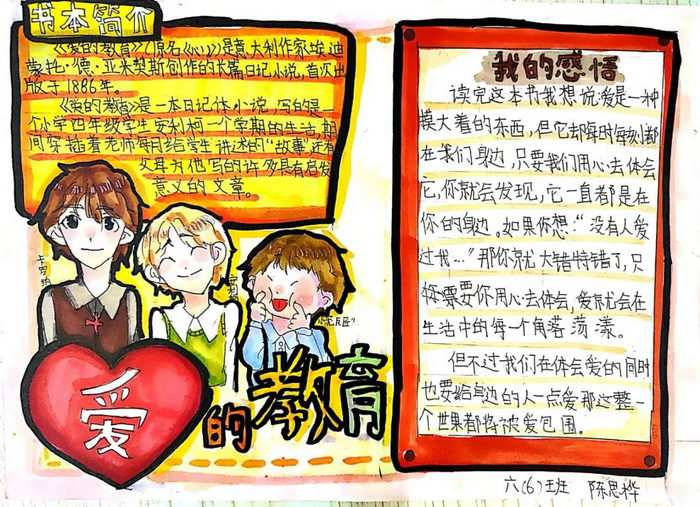 书本简介
《爱的教育》(原名《心》)是意大利作家埃迪
蒙托·德·亚米契斯创作的长篇日记小说,首次出
版于1886年。
《爱的教育》是一本日记体小说,写的是一
个小学四年级学生安利柯一个学期的生活,期
间穿插着老师每月给学生讲述的“故事”还有
父母为他写的许多具有启发
意义的文章。
爱
的教育
我的感悟
读完这本书我想说:爱是一种
摸大着的东西,但它却每时每刻都
在我们身边,只要我们用心去体会
它,你就会发现,它一直都是在
你的身边。如果你想:“没有人爱
过我…”那你就大错特错了,只
你需要你用心去体会,爱就会在
生活中的每一个角落荡漾。
但不过我们在体会爱的同时
也要给身边的人一点爱那这整一
个世界都将被爱包围。
六(6)班 陈思桦